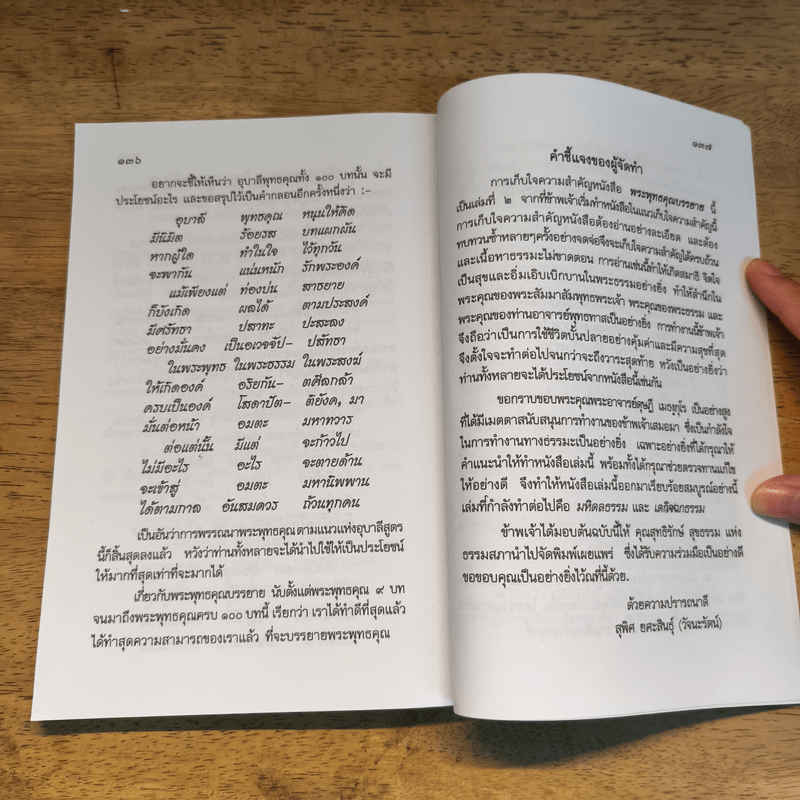 ๑๓๖
อยากจะชี้ให้เห็นว่า อุบาลีพุทธคุณทั้ง ๑๐๐ บทนั้น จะมี
ประโยชน์อะไร และขอสรุปไว้เป็นคำกลอนอีกครั้งหนึ่งว่า :-
อุบาลี พุทธคุณ หนุนให้คิด
มีนิมิต ร้อยรส บทแผกผัน
หากผู้ใด ทำในใจ ไว้ทุกวัน
จะพากัน แน่นหนัก รักพระองค์
แม้เพียงแต่ ท่องบ่น สาธยาย
ก็ยังเกิด ผลได้ ตามประสงค์
มีศรัทธา ปสาทะ ปะสะลง
อย่างมั่นคง เป็นอเวจจัป- ปสัทธา
ในพระพุทธ ในพระธรรม ในพระสงฆ์
ให้เกิดองค์ อริยกัน- ตศีลกล้า
ครบเป็นองค์ โสดาปัต- ติยังค, มา
มั่นต่อหน้า อมตะ มหาทวาร
ต่อแต่นั้น มีแต่ จะก้าวไป
ไม่มีอะไร อะไร จะตายด้าน
จะเข้าสู่ อมตะ มหานิพพาน
ได้ตามกาล อันสมควร ถ้วนทุกคน
เป็นอันว่าการพรรณนาพระพุทธคุณตามแนวแห่งอุบาลีสูตร
นี้ก็สิ้นสุดลงแล้ว หวังว่าท่านทั้งหลายจะได้นำไปใช้ให้เป็นประโยชน์
ให้มากที่สุดเท่าที่จะมากได้
เกี่ยวกับพระพุทธคุณบรรยาย นับตั้งแต่พระพุทธคุณ ๙ บท
จนมาถึงพระพุทธคุณครบ ๑๐๐ บทนี้ เรียกว่า เราได้ทำดีที่สุดแล้ว
ได้ทำสุดความสามารถของเราแล้ว ที่จะบรรยายพระพุทธคุณ
๑๓๗
คำชี้แจงของผู้จัดทำ
การเก็บใจความสำคัญหนังสือ พระพุทธคุณบรรยาย นี้
เป็นเล่มที่ ๒ จากที่ข้าพเจ้าเริ่มทำหนังสือในแนวเก็บใจความสำคัญนี้
การเก็บใจความสำคัญหนังสือต้องอ่านอย่างละเอียด และต้อง
ทบทวนซ้ำหลายๆครั้งอย่างจดจ่อจึงจะเก็บใจความสำคัญได้ครบถ้วน
และเนื้อหาธรรมะไม่ขาดตอน การอ่านเช่นนี้ทำให้เกิดสมาธิ จิตใจ
เป็นสุขและอิ่มเอิบเบิกบานในพระธรรมอย่างยิ่ง ทำให้สำนึกใน
พระคุณของพระสัมมาสัมพุทธพระเจ้า พระคุณของพระธรรม และ
พระคุณของท่านอาจารย์พุทธทาสเป็นอย่างยิ่ง การทำงานนี้ข้าพเจ้า
จึงถือว่าเป็นการใช้ชีวิตบั้นปลายอย่างคุ้มค่าและมีความสุขที่สุด
จึงตั้งใจจะทำต่อไปจนกว่าจะถึงวาระสุดท้าย หวังเป็นอย่างยิ่งว่า
ท่านทั้งหลายจะได้ประโยชน์จากหนังสือนี้เช่นกัน
ขอกราบขอบพระคุณพระอาจารย์ดุษฎี เมธงฺกุโร เป็นอย่างสูง
ที่ได้มีเมตตาสนับสนุนการทำงานของข้าพเจ้าเสมอมา ซึ่งเป็นกำลังใจ
ในการทำงานทางธรรมะเป็นอย่างยิ่ง เฉพาะอย่างยิ่งที่ได้กรุณาให้
คำแนะนำให้ทำหนังสือเล่มนี้ พร้อมทั้งได้กรุณาช่วยตรวจทานแก้ไข
ให้อย่างดี จึงทำให้หนังสือเล่มนี้ออกมาเรียบร้อยสมบูรณ์อย่างนี้
เล่มที่กำลังทำต่อไปคือ มหิดลธรรม และ เตกิจฉกธรรม
ข้าพเจ้าได้มอบต้นฉบับนี้ให้ คุณสุทธิรักษ์ สุขธรรม แห่ง
ธรรมสภานำไปจัดพิมพ์เผยแพร่ ซึ่งได้รับความร่วมมือเป็นอย่างดี
ขอขอบคุณเป็นอย่างยิ่งไว้ณที่นี้ด้วย.
ด้วยความปรารถนาดี
สุพิศ ยศะสินธุ์ (วัจนะรัตน์)